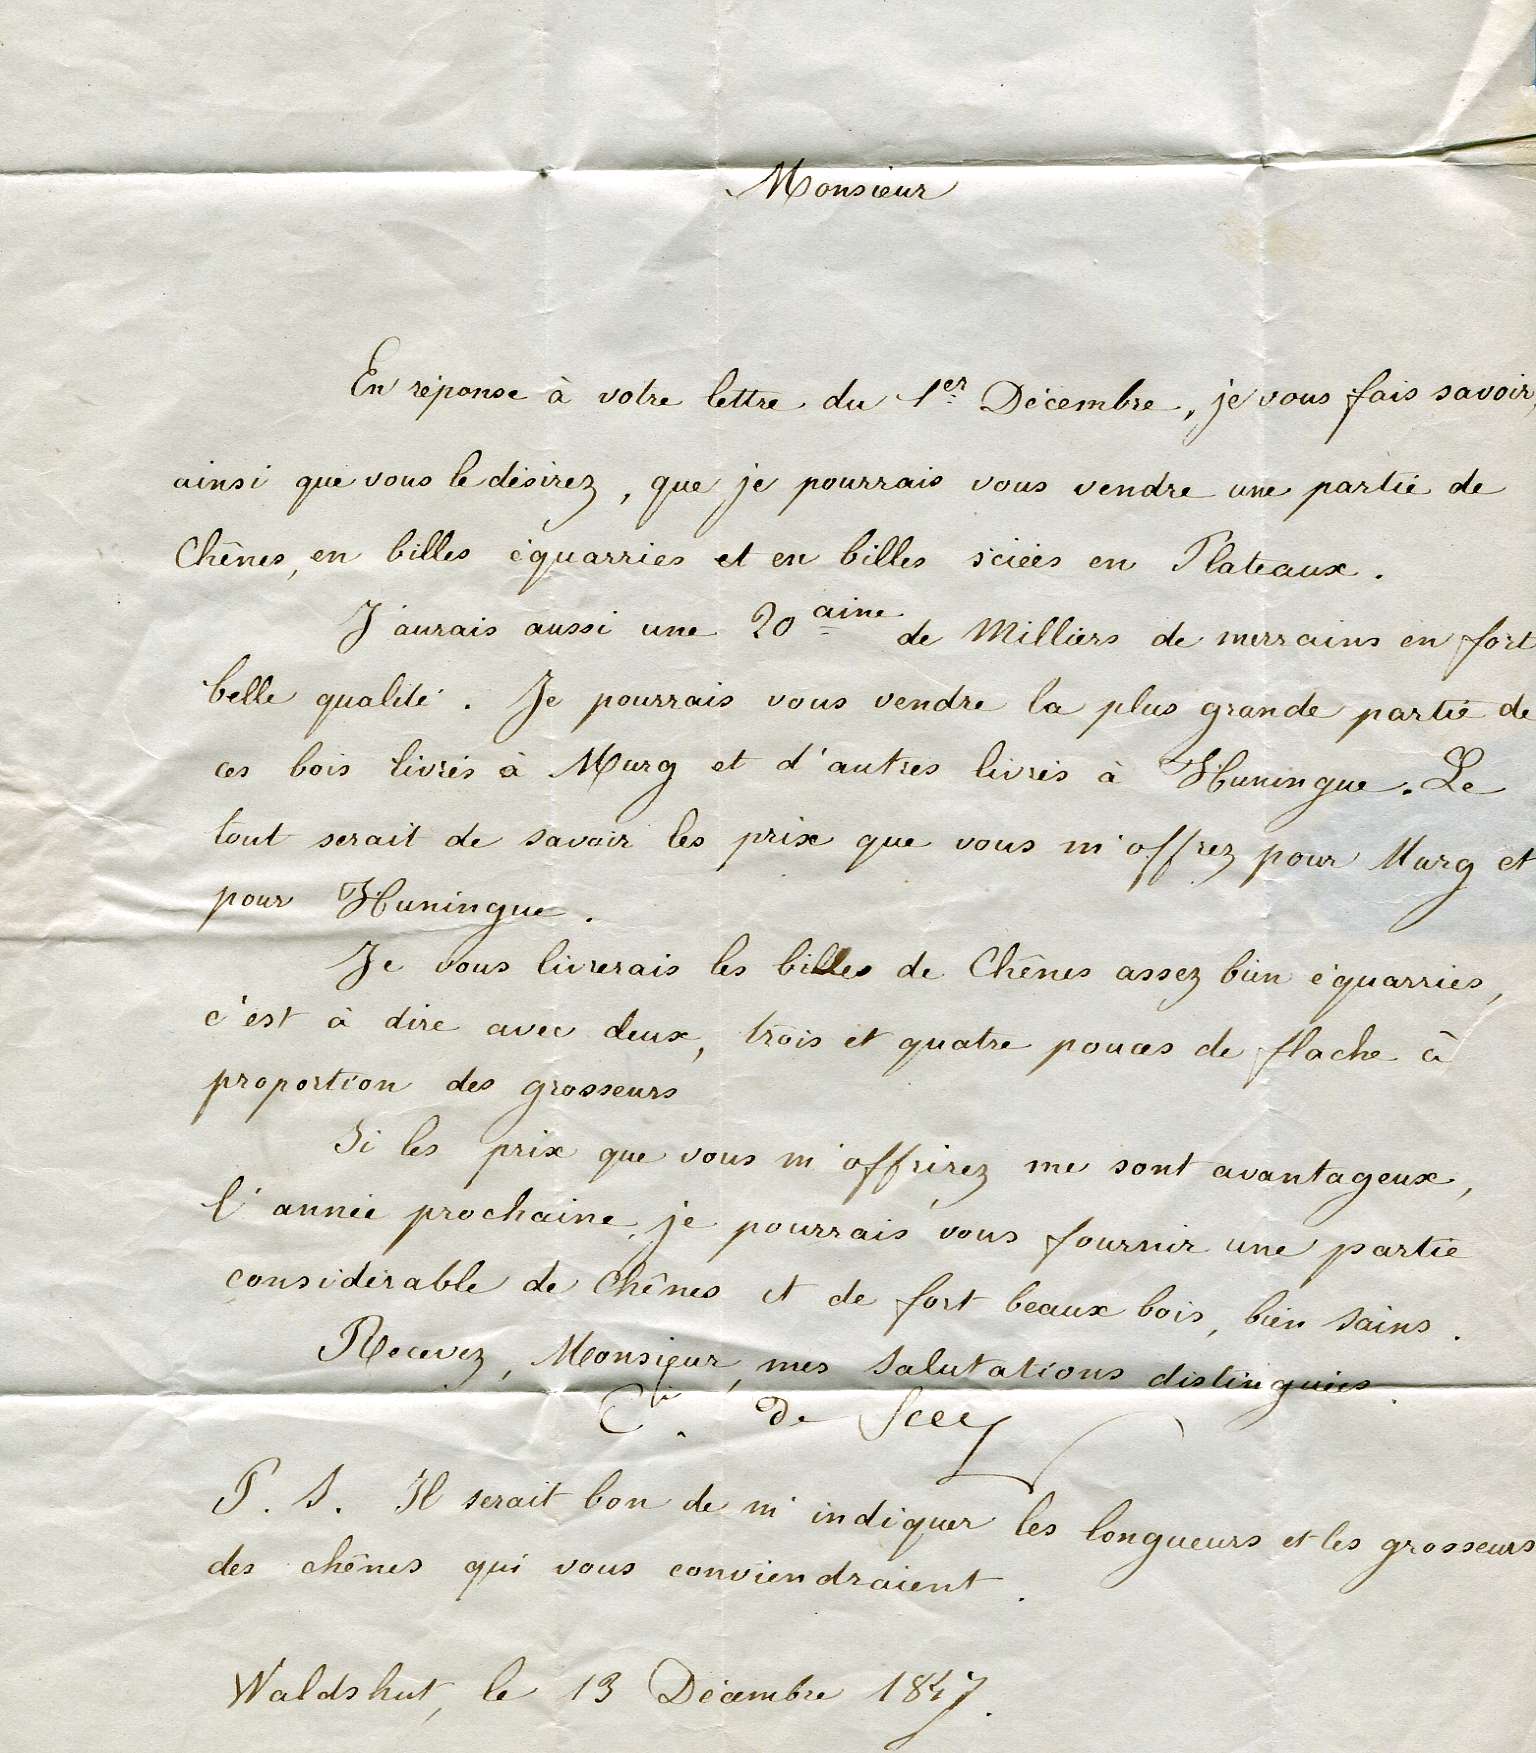 Monsieur
En réponse à votre lettre du 1er Décembre, je vous fais savoir,
ainsi que vous le désirez, que je pourrais vous vendre une partie de
Chênes, en billes équarries et en billes sciées en Plateaux.
J'aurais aussi une 20aine de Milliers de merrains en fort
belle qualité. Je pourrais vous vendre la plus grande partie de
ces bois livrés à Murg et d'autres livrés à Huningue. Le
tout serait de savoir les prix que vous m'offrez pour Murg et
pour Huningue.
Je vous livrerais les billes de Chênes assez bien équarries,
c'est à dire avec deux, trois et quatre pouces de flache à
proportion des grosseurs
Si les prix que vous m'offrirez me sont avantageux,
l'année prochaine, je pourrais vous fournir une partie
considérable de Chênes et de fort beaux bois, bien sains.
Recevez, Monsieur, mes salutations distinguées.
de Scey
P. S. Il serait bon de m'indiquer les longueurs et les grosseurs
des chênes qui vous conviendraient.
Waldshut, le 13 Décembre 1847.